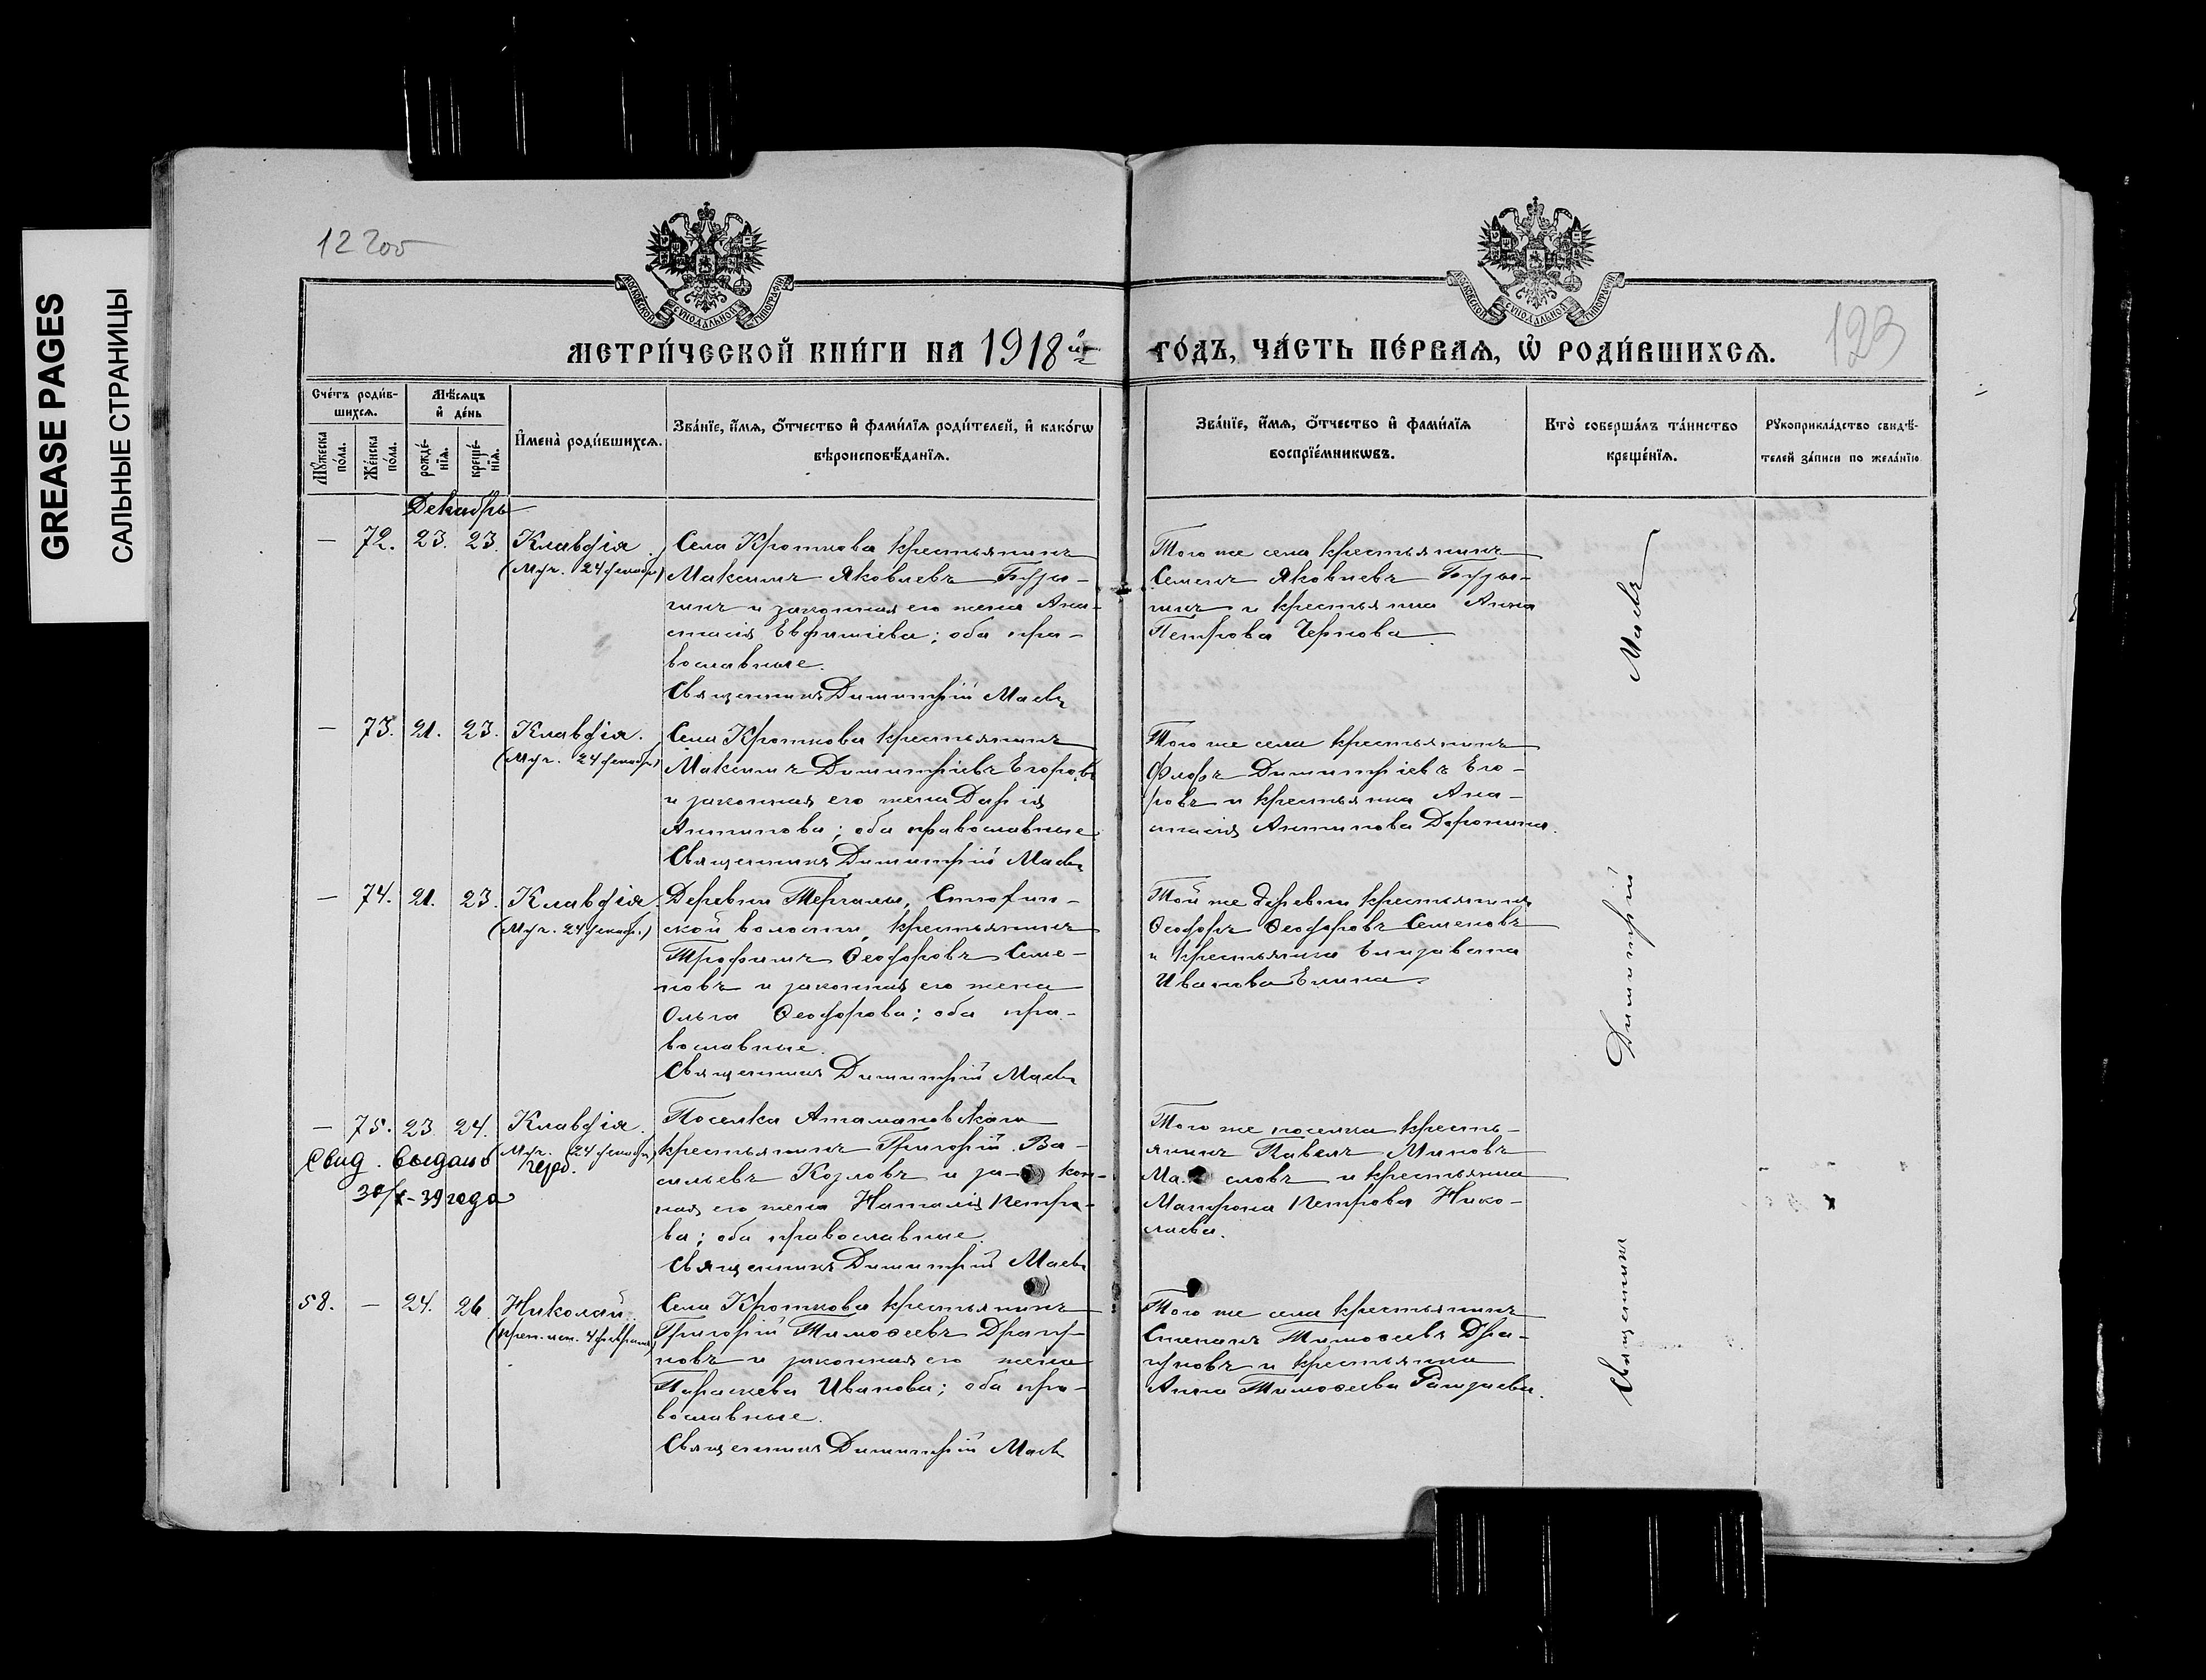 GREASE PAGES
САЛЬНЫЕ СТРАНИЦЫ
12 200
123
МОСКОВСКОЙ СѴНОДАЛЬНОЙ ТИПОГРАФІИ
МОСКОВСКОЙ СѴНОДАЛЬНОЙ ТИПОГРАФІИ
МЕТРИ́ЧЕСКОЙ КНИ́ГИ НА 1918й
ГО́ДЪ, ЧА́СТЬ ПЕ́РВАѦ, Ѡ҆ РОДИ́ВШИХСѦ.
Сче́тъ роди́в-
шихсѧ.
Мꙋ́жеска по́ла.
Же́нска по́ла.
Мѣ́сѧцъ
и҆ де́нь
рожде́-
нїѧ.
креще́-
нїѧ.
И҆мена̀ роди́вшихсѧ.
Зва́нїе, и҆́мѧ, ѻ҆́тчество и҆ фами́лїѧ роди́телей, и҆ како́гѡ
вѣроисповѣ́данїѧ.
Зва́нїе, и҆́мѧ, ѻ҆́тчество и҆ фами́лїѧ
воспрїе́мникѡвъ.
Кто̀ соверша́лъ та́инство
креще́нїѧ.
Рꙋкоприкла́дство свидѣ́-
телей за́писи по жела́нїю
Декабрь
— 72. 23. 23. Клавдія.
(Муч. 24 декабр.)
Села Кроткова крестьянинъ
Максимъ Яковлевъ
и законная его жена Ана-
стасія Евфиміева; оба пра-
вославные.
Священникъ Димитрій Маевъ
Того же села крестьянинъ
Семенъ Яковлевъ
и крестьянка Анна
Петрова Чернова
— 73. 21. 23. Клавдія.
(Муч. 24 декабр.)
Села Кроткова крестьянинъ
Максимъ Димитріевъ Егоровъ
и законная его жена Дарія
Антипова; оба православные
Священникъ Димитрій Маевъ
Того же села крестьянинъ
Флоръ Димитріевъ Его-
ровъ и крестьянка Ана-
стасія Антипова Доронина.
— 74. 21. 23. Клавдія
(Муч. 24 декабр.)
Деревни
ской волости, крестьянинъ
Трофимъ Ѳеодоровъ Семе-
новъ и законная его жена
Ольга Ѳеодорова; оба пра-
вославные.
Священникъ Димитрій Маевъ
Той же деревни крестьянинъ
Ѳеодоръ Ѳеодоровъ Семеновъ
и крестьянка Елизавета
Иванова Елина.
— 75. 23 24. Клавдія.
(Муч. 24 декабря)
Свид. выдано
30/X-39 года
Поселка Атамановскаго
крестьянинъ Григорій Ва-
сильевъ Козловъ и за- кон-
ная его жена Наталія Петро-
ва; оба православные.
Священникъ Димитрій Маевъ
Того же поселка кресть-
янинъ Павелъ Миновъ
Ма. словъ и крестьянка
Матрона Петрова Нико-
лаева.
58. — 24. 26 Николай
(преп. исп. 4 февраля)
Села Кроткова крестьянинъ
Григорій Тимоѳеевъ Драгу-
новъ и законная его жена
Параскева Иванова; оба пра-
вославные.
Священникъ Димитрій Маевъ
Того же села крестьянинъ
Степанъ Тимоѳеевъ Дра-
гуновъ и крестьянка
Анна Тимоѳеева
Священникъ Димитрій Маевъ